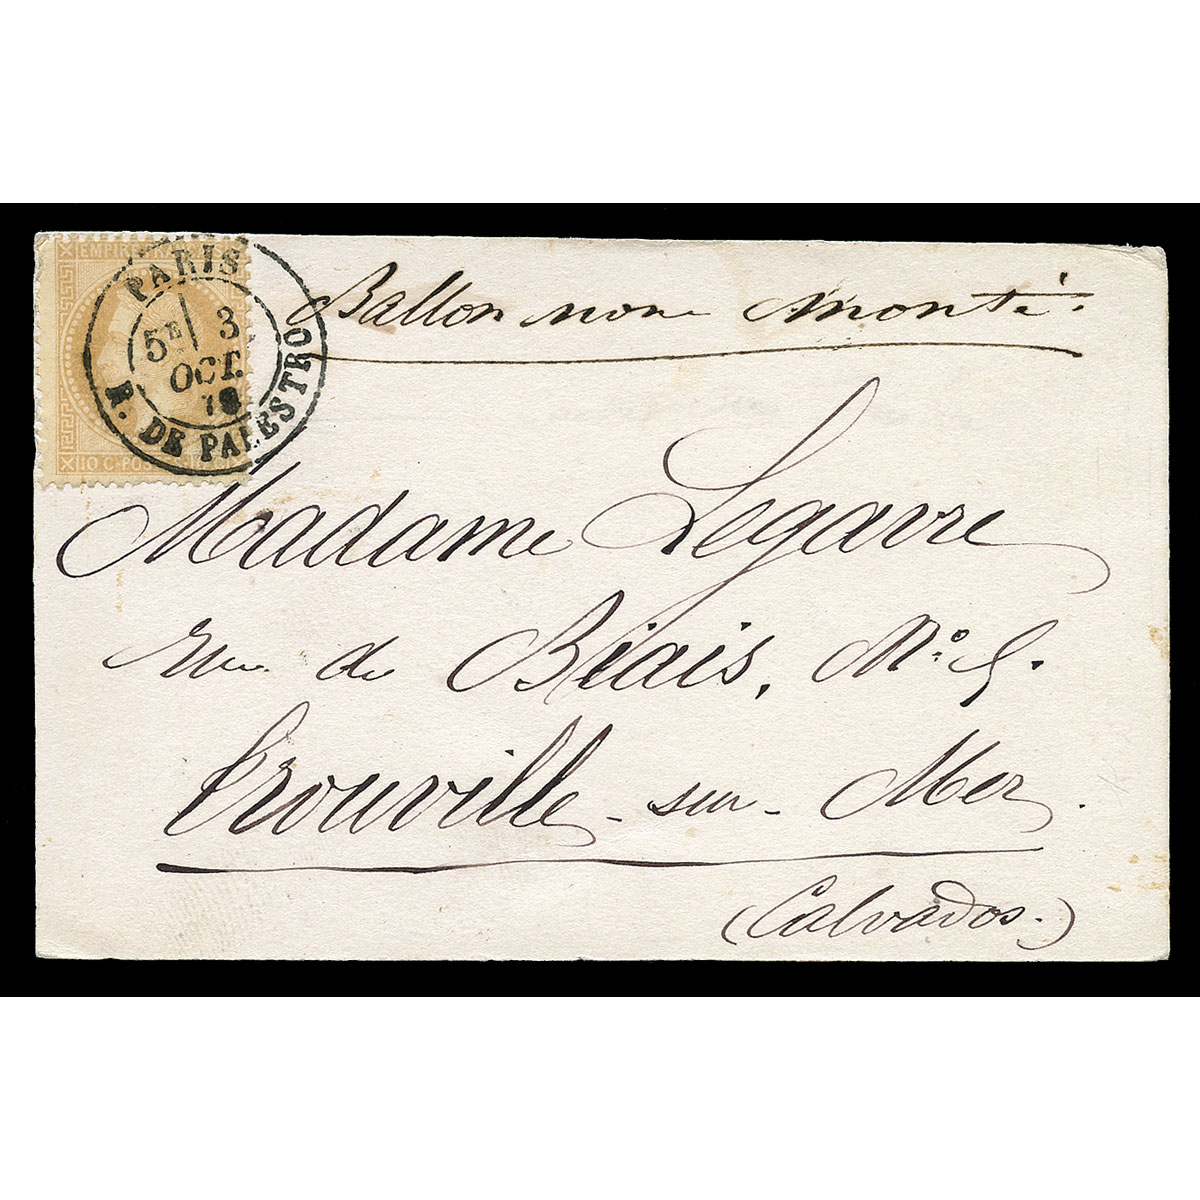 EMPIRE FRANÇAIS
10 C. POSTES
PARIS
5E 3
OCT.
70
R. DE PALESTRO
Ballon non monté.
Madame Legavre
rue de Biais, N.° 5.
Trouville-sur-Mer.
(Calvados.)